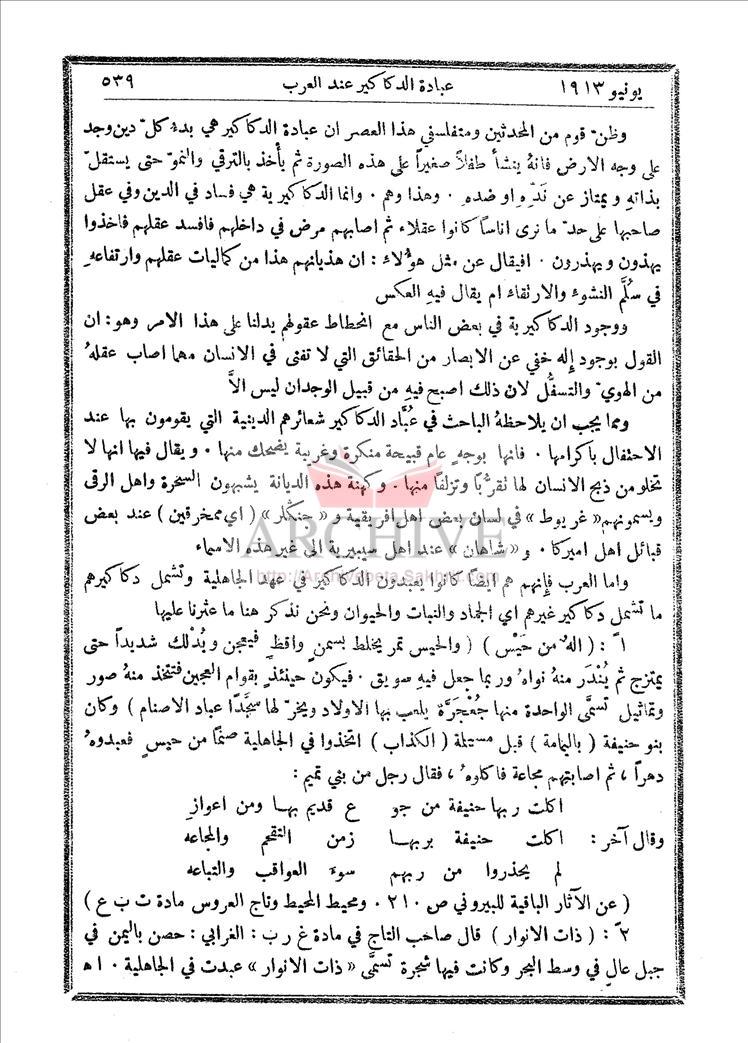 يونيو ١٩١٣ عبادة الدكاكير عند العرب ٥٣٩
وظنّ قوم من المحدثين ومتفلسفي هذا العصر ان عبادة الدكاكير هي بدء كلّ دين وجد
على وجه الارض فانهُ ينشأ طفلاً صغيراً على هذه الصورة ثم يأخذ بالترقي والنموّ حتى يستقلّ
بذاتهِ ويمتاز عن نَدّهِ او ضده . وهذا وهم . وانما الدكاكيرية هي فساد في الدين وفي عقل
صاحبها على حدّ ما نرى اناساً كانوا عقلاء ثم اصابهم مرض في داخلهم فافسد عقلهم فاخذوا
يهذون ويهذرون . افيقال عن مثل هؤلاء : ان هذيانهم هذا من كماليات عقلهم وارتفاعهِ
في سُلَّم النشوء والارتقاء ام يقال فيهِ العكس
ووجود الدكاكيرية في بعض الناس مع انحطاط عقولهم يدلنا على هذا الامر وهو : ان
القول بوجود إله خفي عن الابصار من الحقائق التي لا تفنى في الانسان مهما اصاب عقلهُ
من الهويّ والتسفُّل لان ذلك اصبح فيهِ من قبيل الوجدان ليس الاَّ
ومما يجب ان يلاحظهُ الباحث في عُبَّاد الدكاكير شعائرهم الدينية التي يقومون بها عند
الاحتفال باكرامها . فانها بوجهٍ عام قبيحة منكرة وغريبة يضحك منها . ويقال فيها انها لا
تخلو من ذبح الانسان لها تقرُّباً وتزلفاً منها . وكهنة هذه الديانة يشبهون السحرة واهل الرقى
ويسمونهم « غريوط » في لسان بعض اهل افريقية و « جنكلر » ( اي ممخرقين ) عند بعض
قبائل اهل اميركا . و « شاهان » عند اهل سيبيرية الى غير هذه الاسماء
واما العرب فإنهم هم ايضاً كانوا يعبدون الدكاكير في عهد الجاهلية وتشمل دكاكيرهم
ما تشمل دكاكير غيرهم اي الجماد والنبات والحيوان ونحن نذكر هنا ما عثرنا عليها
١ً : ( اله من حَيْس ) ( والحيس تمر يخلط بسمنٍ واقطٍ فيعجن ويُدْلك شديداً حتى
يمتزج ثم يُنْدَر منهُ نواه وربما جعل فيهِ سويق . فيكون حينئذٍ بقوام العجين فتتخذ منهُ صور
وتماثيل تسمَّى الواحدة منها جُعْجَرَّة يلعب بها الاولاد ويخرّ لها سجَّدًا عباد الاصنام ) وكان
بنو حنيفة ( باليمامة ) قبل مسيلمة ( الكذاب ) اتخذوا في الجاهلية صنماً من حيس فعبدوهُ
دهراً ، ثم اصابتهم مجاعة فاكلوهُ ، فقال رجل من بني تميم :
اكلت ربها حنيفة من جو ع قديم بهــا ومن اعوازِ
وقال آخر : اكلت حنيفة بربهــا زمن التقحم والمجاعه
لم يحذروا من ربهم سوءَ العواقب والتباعه
( عن الآثار الباقية للبيروني ص ٢١٠ . ومحيط المحيط وتاج العروس مادة ت ب ع )
٢ً : ( ذات الانوار ) قال صاحب التاج في مادة غ ر ب : الغرابي : حصن باليمن في
جبل عالٍ في وسط البحر وكانت فيها شجرة تسمَّى « ذات الانوار » عبدت في الجاهلية . ا ه
ARCHIVE
http://Archivebeta.Sakhrit.com